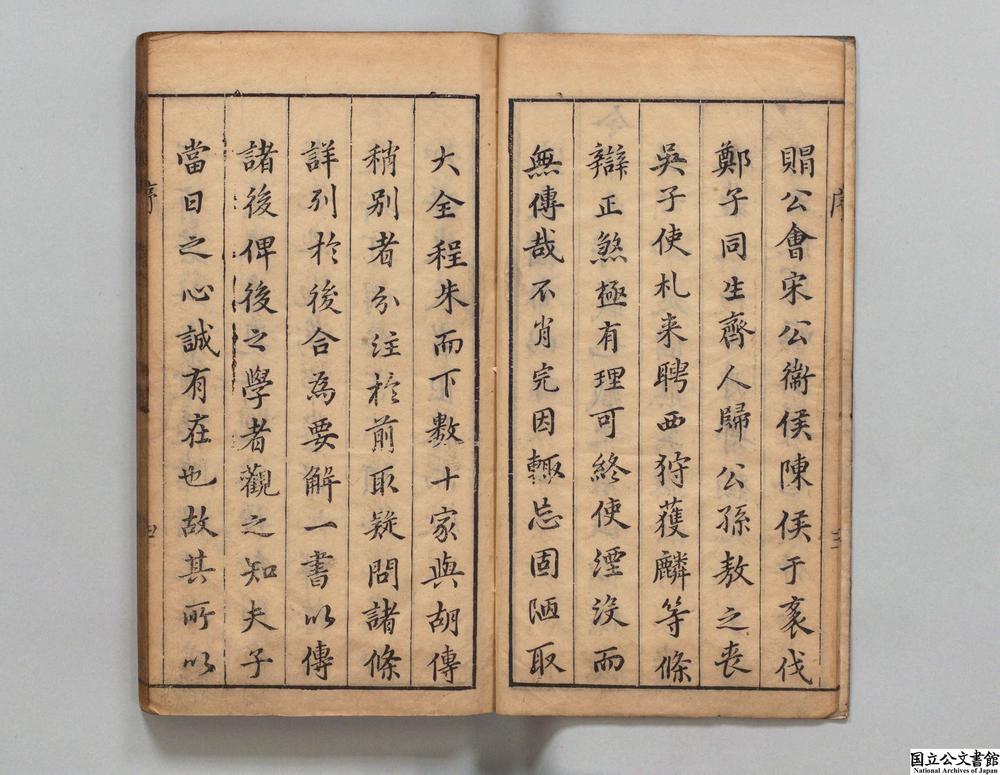 序
賵公會宋公衞侯陳侯于袲伐
鄭子同生齊人歸公孫敖之喪
吳子使札来聘西狩獲麟等條
辯正煞極有理可終使湮沒而
無傳哉不肖完因輙忘固陋取
大全程朱而下數十家與胡傳
稍別者分注於前取疑問諸條
詳列於後合為要解一書以傳
諸後俾後之學者觀之知夫子
當日之心誠有在也故其所以
序
四
国立公文書館
National Archives of Japan